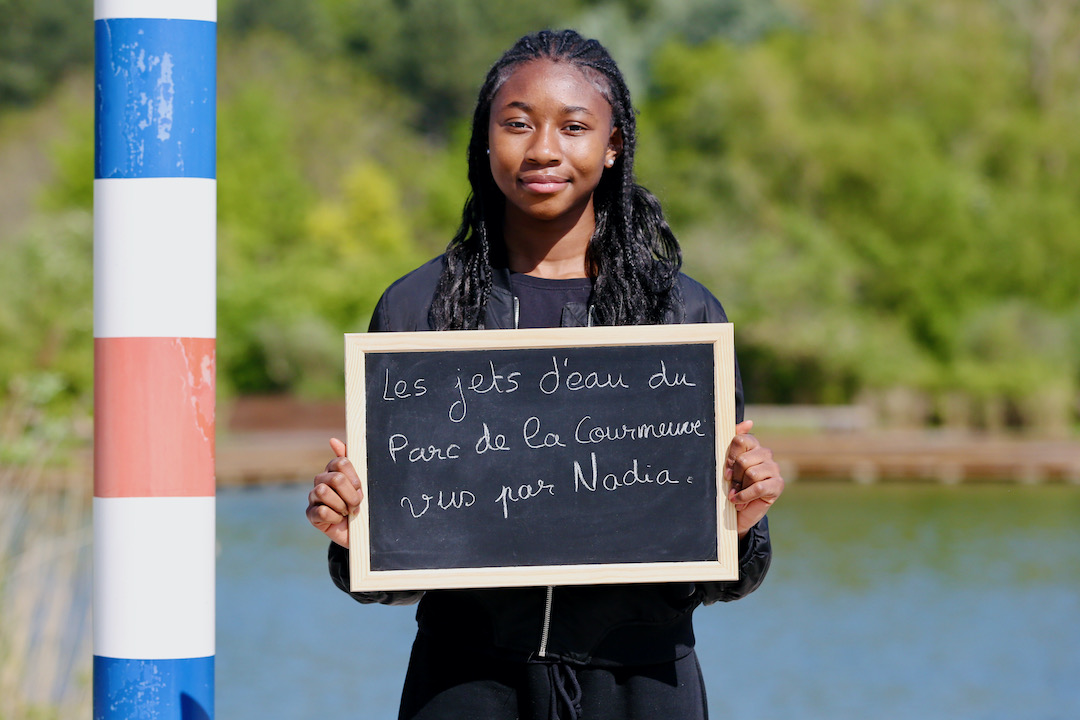 Les jets d'eau du
Parc de la Courneuve
vus par Nadia.